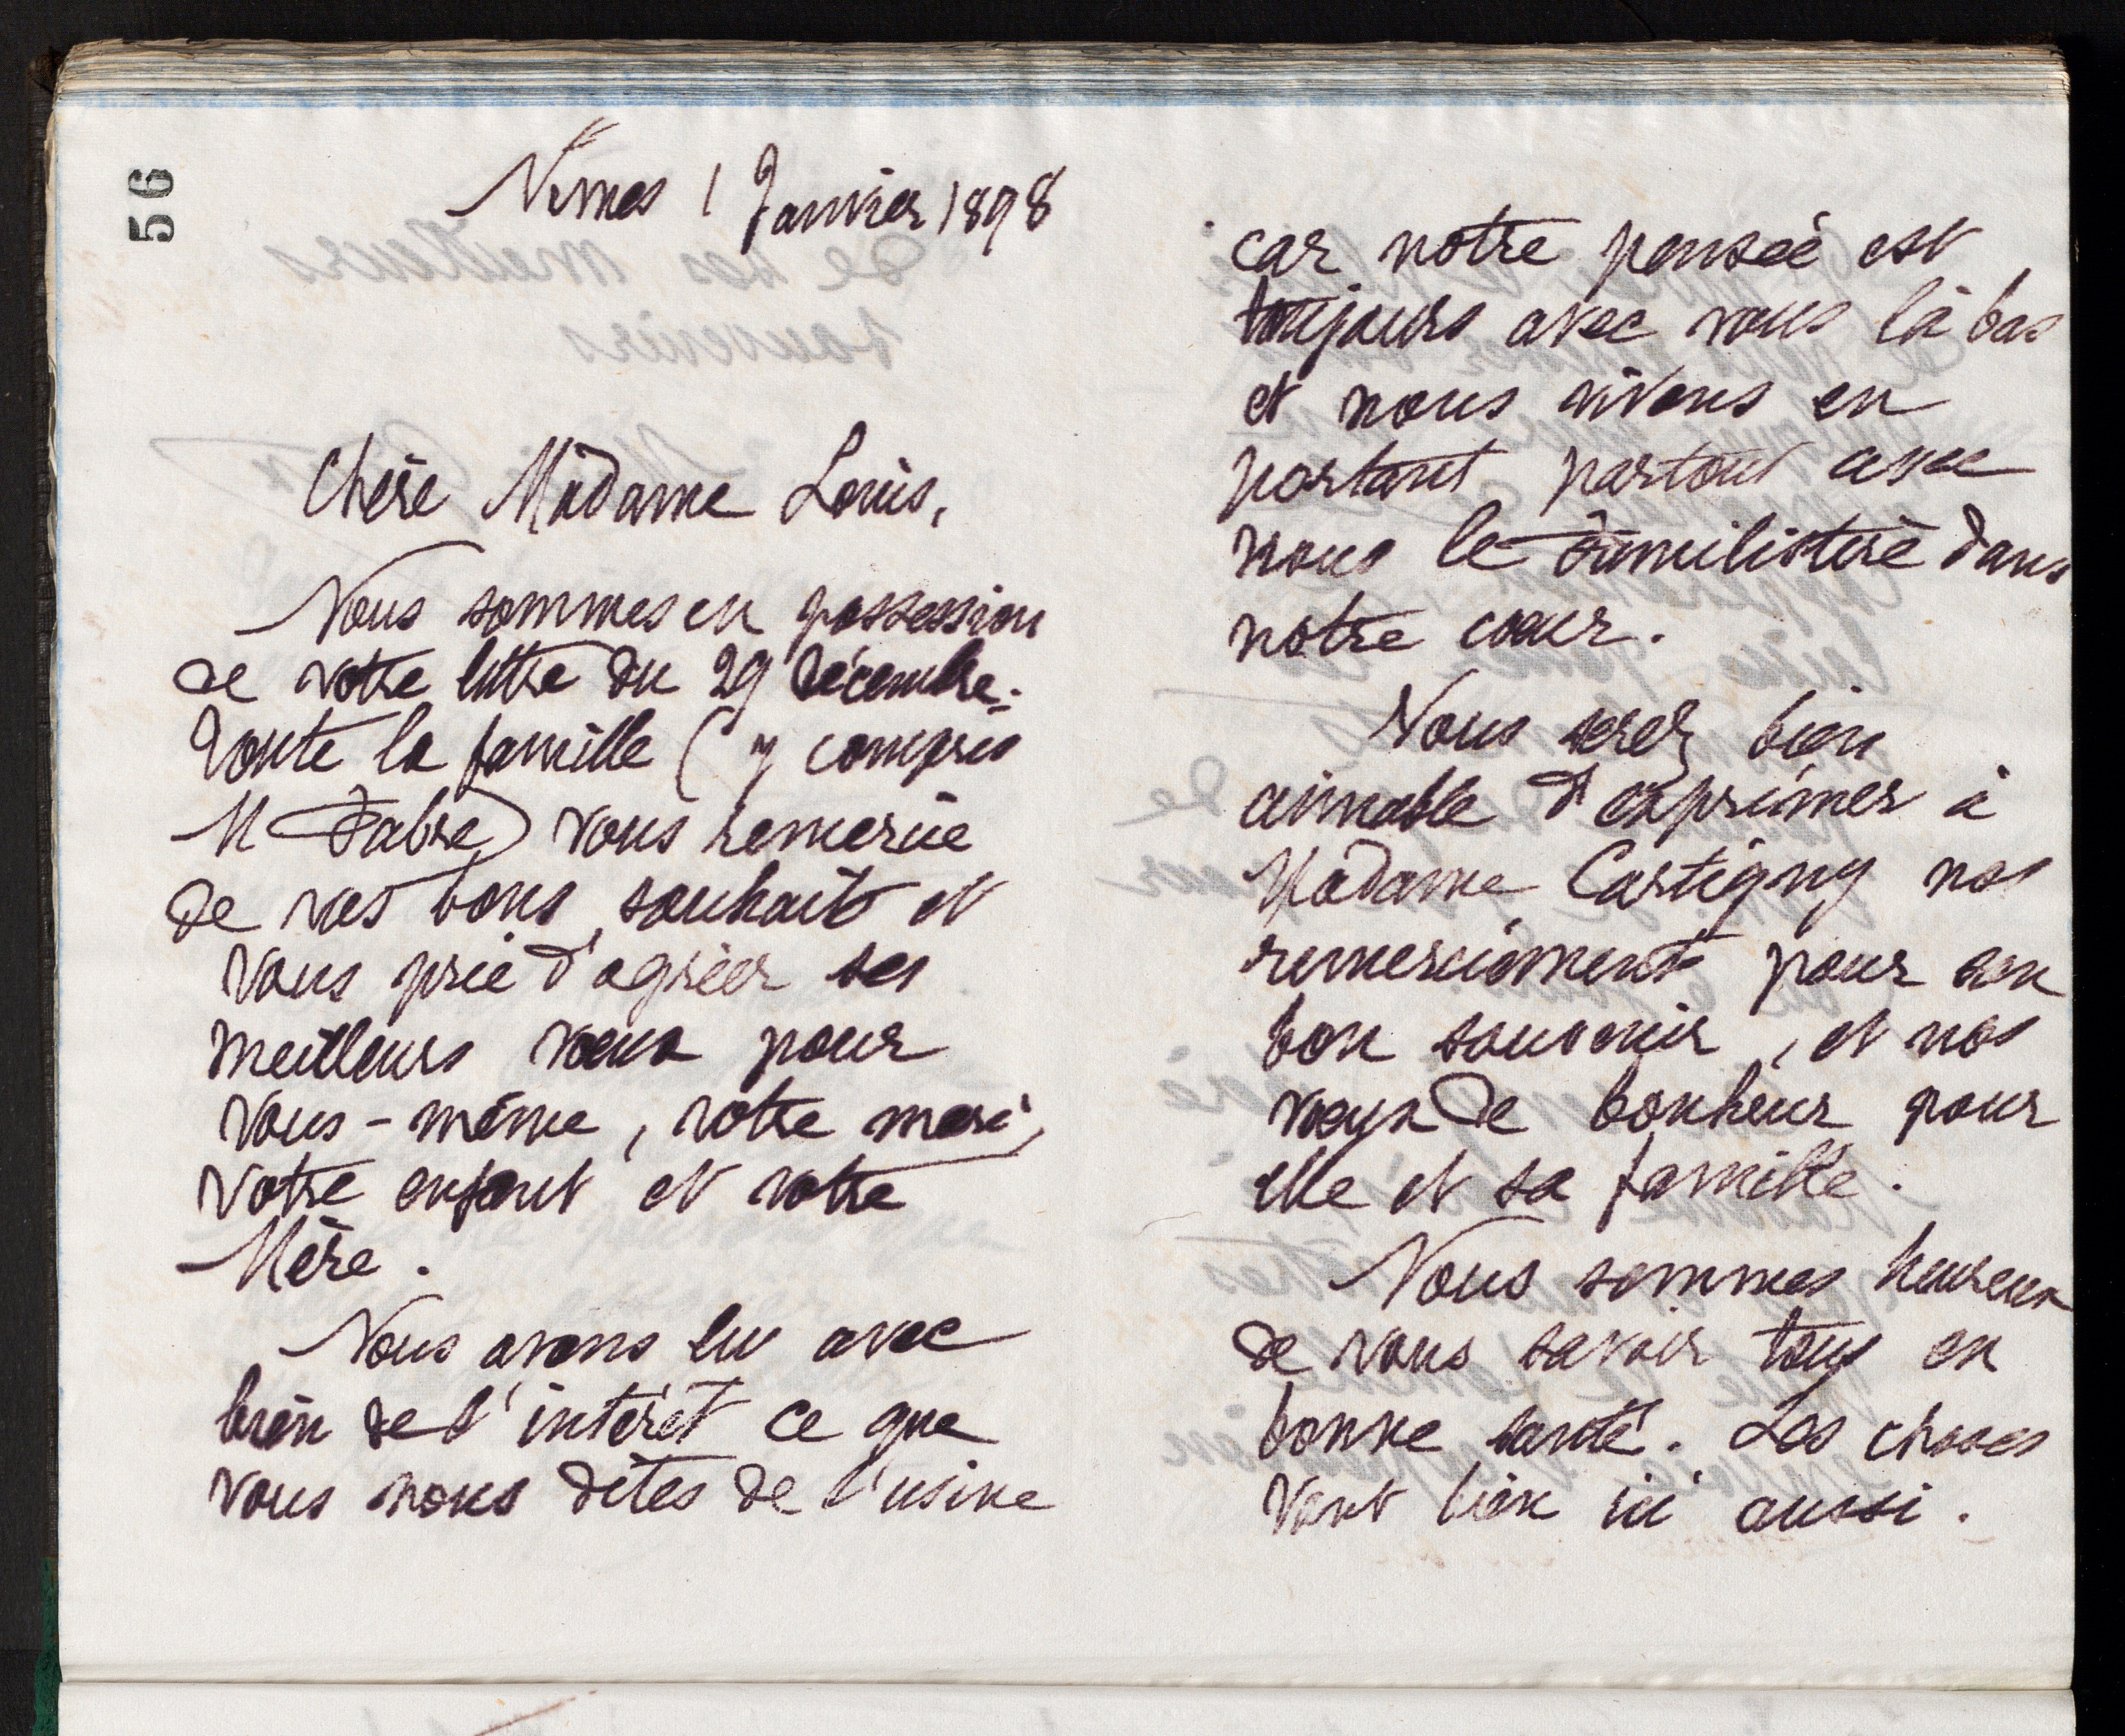 56
Nimes 1 Janvier 1898
Chère Madame Louis,
Nous sommes en possession
de votre lettre du 29 décembre.
Toute la famille (y compris
M Fabre) vous remercie
de vos bons souhaits et
vous prie d'agréer ses
meilleurs voeux pour
vous-même, votre mari,
votre enfant et votre
Mère.
Nous avons lu avec
bien de l'intérêt ce que
vous nous dites de l'usine
car notre pensée est
toujours avec vous là bas
et nous vivons en
portant partout avec
nous le Familistère dans
notre coeur.
Vous serez bien
aimable d'exprimer à
Madame Cartigny nos
remerciements pour son
bon souvenir, et nos
voeux de bonheur pour
elle et sa famille.
Nous sommes heureux
de vous savoir tous en
bonne santé. Les choses
vont bien ici aussi.